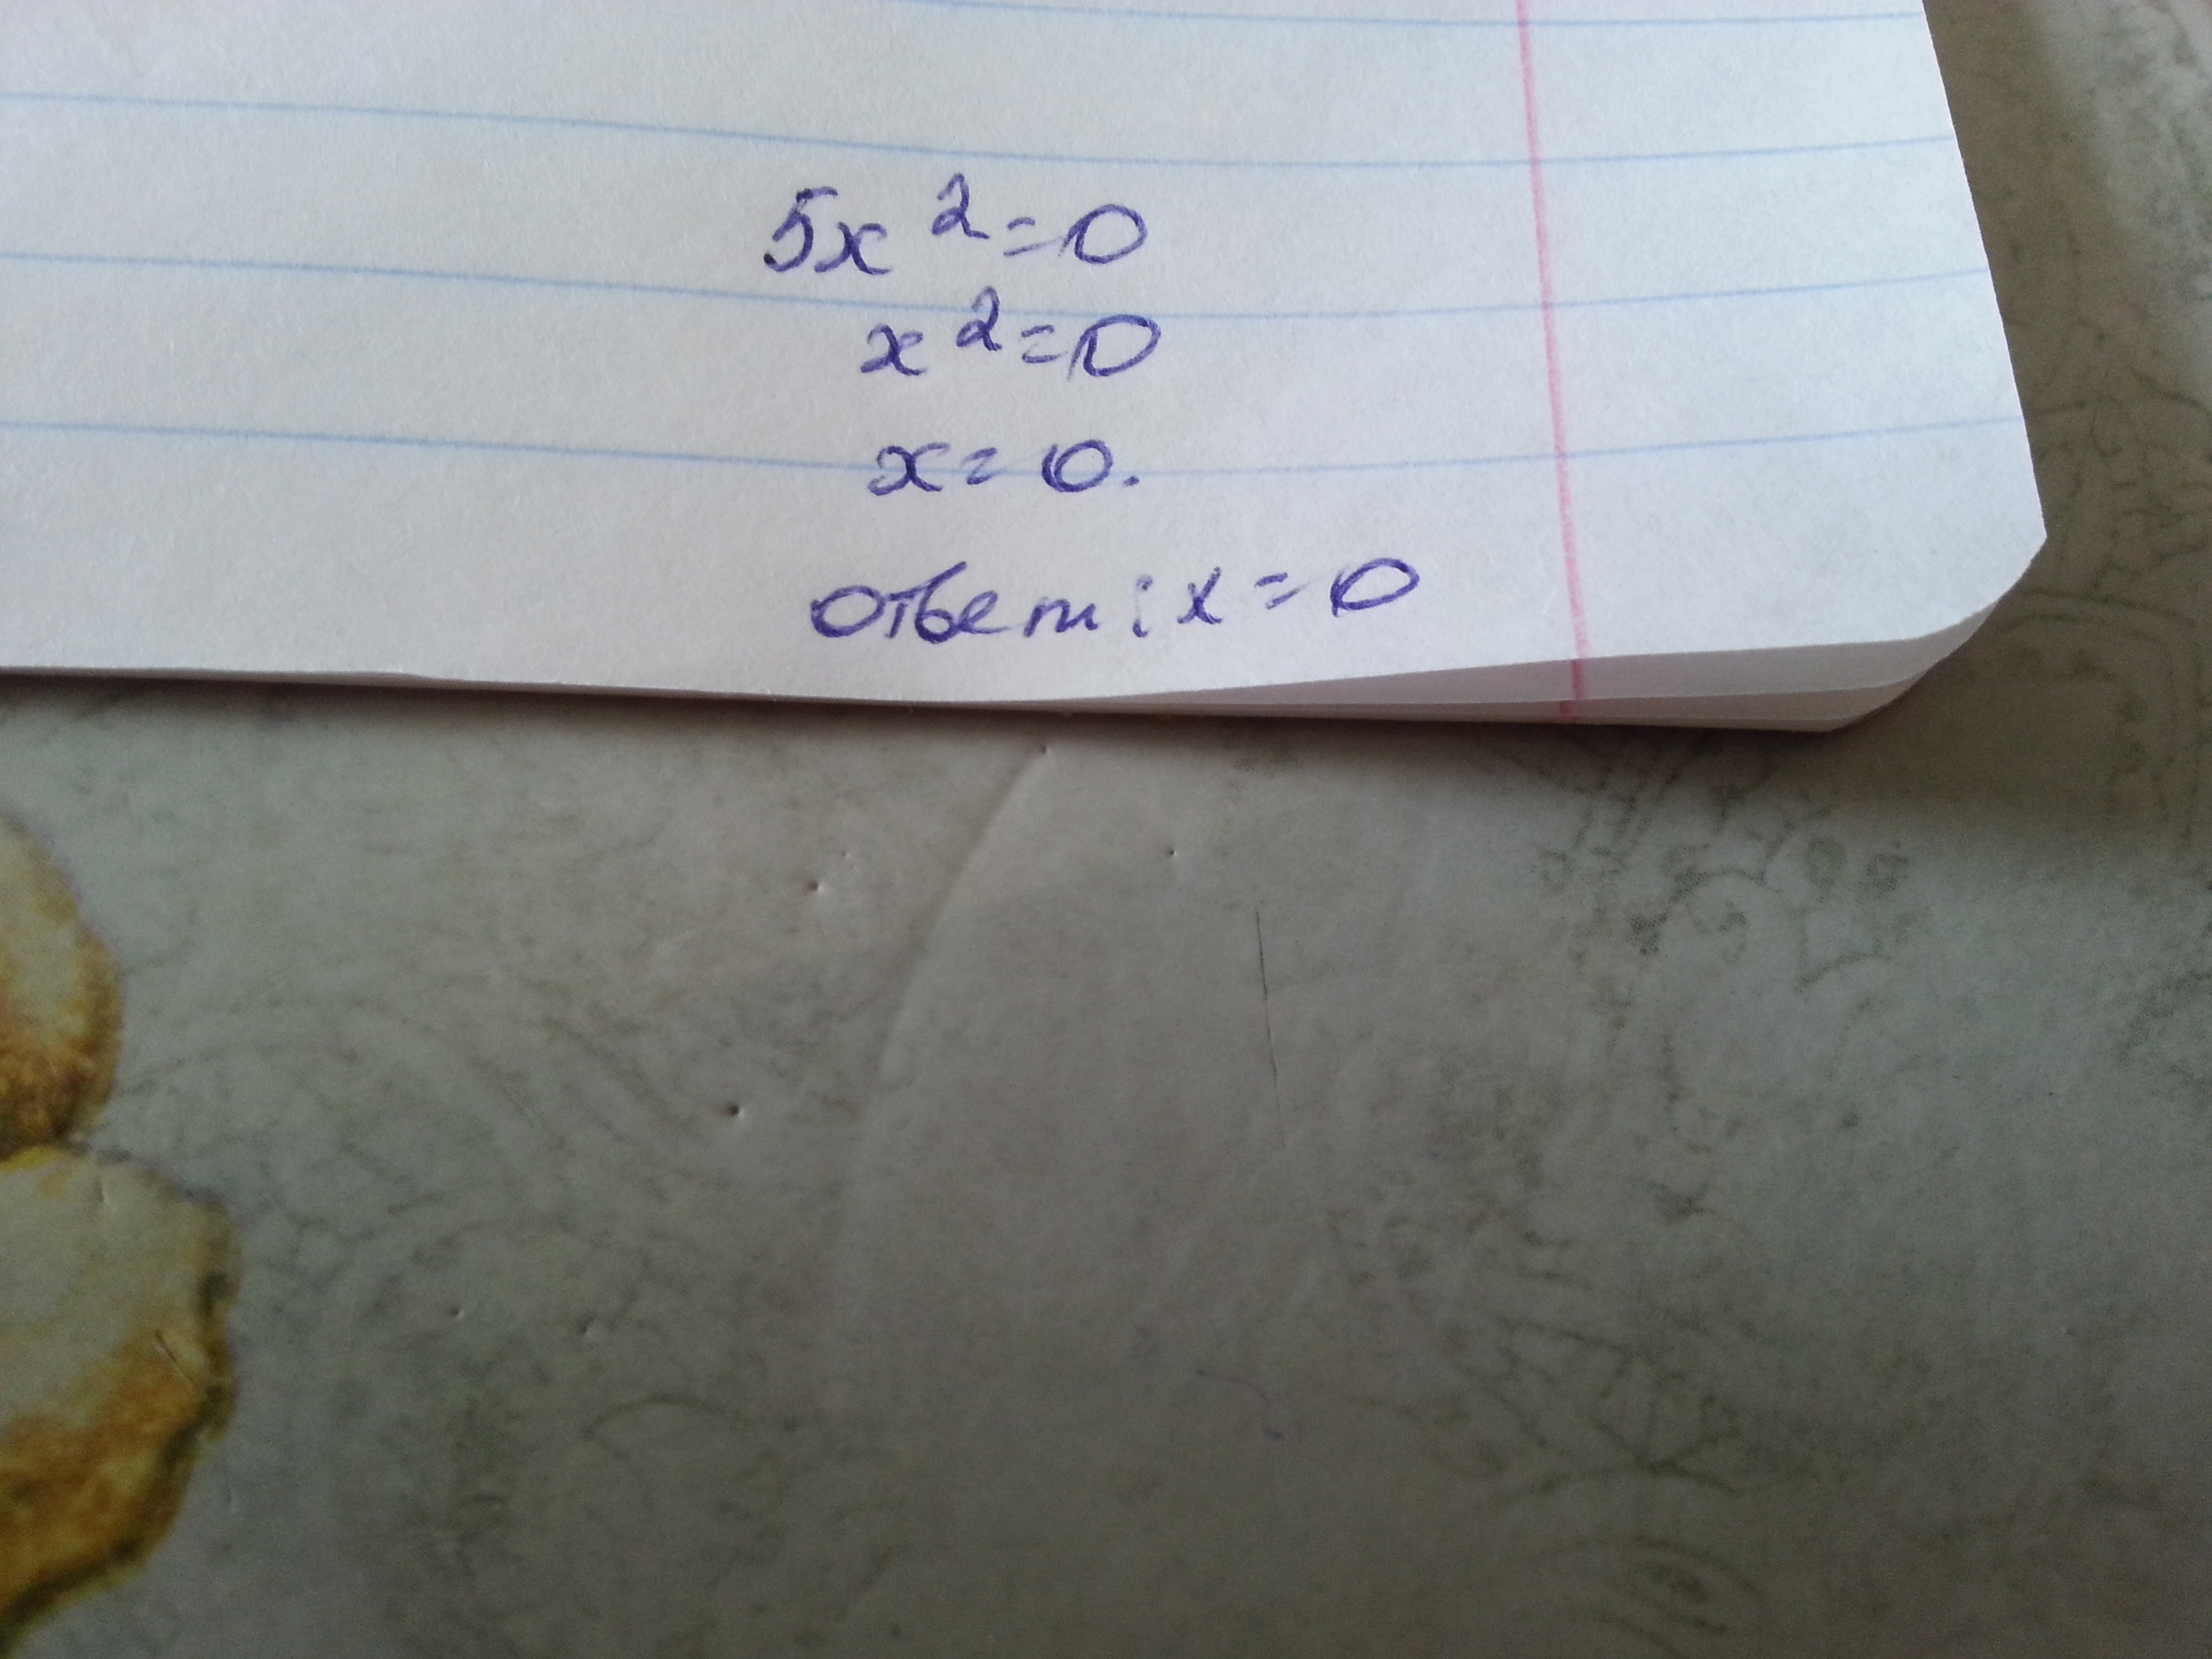 5x²=0
x²=0
x=0.
ответ: x=0